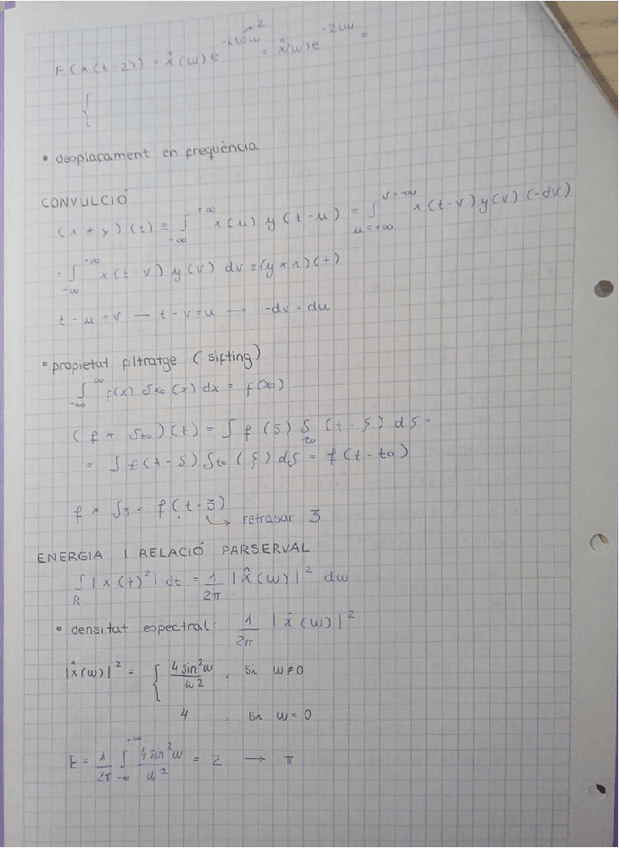 F(x(t-2)) = x̂(ω)e^{-itoω} = x̂(ω)e^{-2iω} =
• desplaçament en freqüència
CONVULCIÓ
(x * y)(t) = ∫_{-∞}^{+∞} x(u) y(t-u) = ∫_{u=+∞}^{v=-∞} x(t-v) y(v) (-dv)
= ∫_{-∞}^{+∞} x(t-v) y(v) dv = (y * x)(t)
t - u = v → t - v = u → -dv = du
• propietat filtratge (sifting)
∫_{-∞}^{∞} f(x) δxo (x) dx = f(xo)
(f * δto)(t) = ∫ f(ξ) δ_{to} (t - ξ) dξ =
= ∫ f(t-ξ) δto (ξ) dξ = f(t-to)
f * δ3 = f(t-3)
↳ retrasar 3
ENERGIA I RELACIÓ PARSERVAL
∫_R |x(t)²| dt = 1/2π |x̂(ω)|² dω
• densitat espectral: 1/2π |x̂(ω)|²
|x̂(ω)|² = { 4sin²ω/ω², si ω≠0
4, si ω=0
E = 1/2π ∫_{-∞}^{-∞} 4sin²ω/ω² = 2 → π